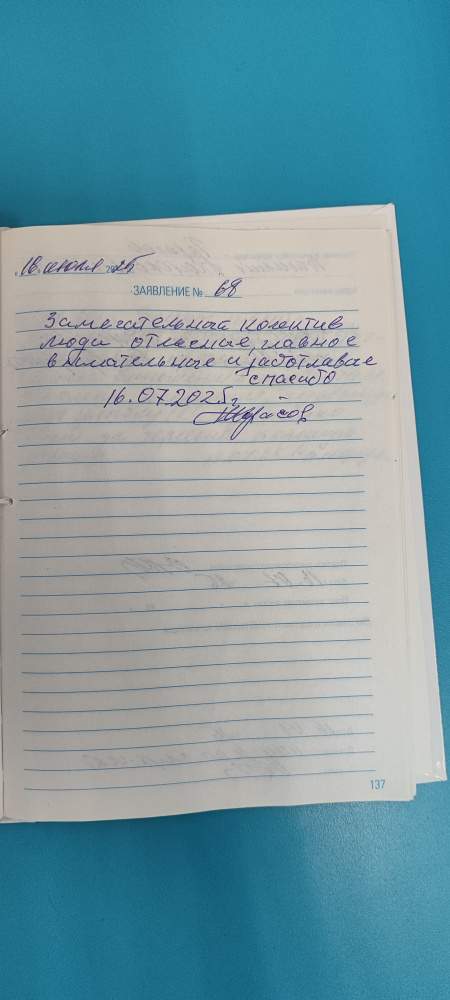 "16" июля 2025
ЗАЯВЛЕНИЕ № 68
Замечательный колектив
люди отличные, главное
внимательные и заботлавые
спасибо
16.07.2025г.
137